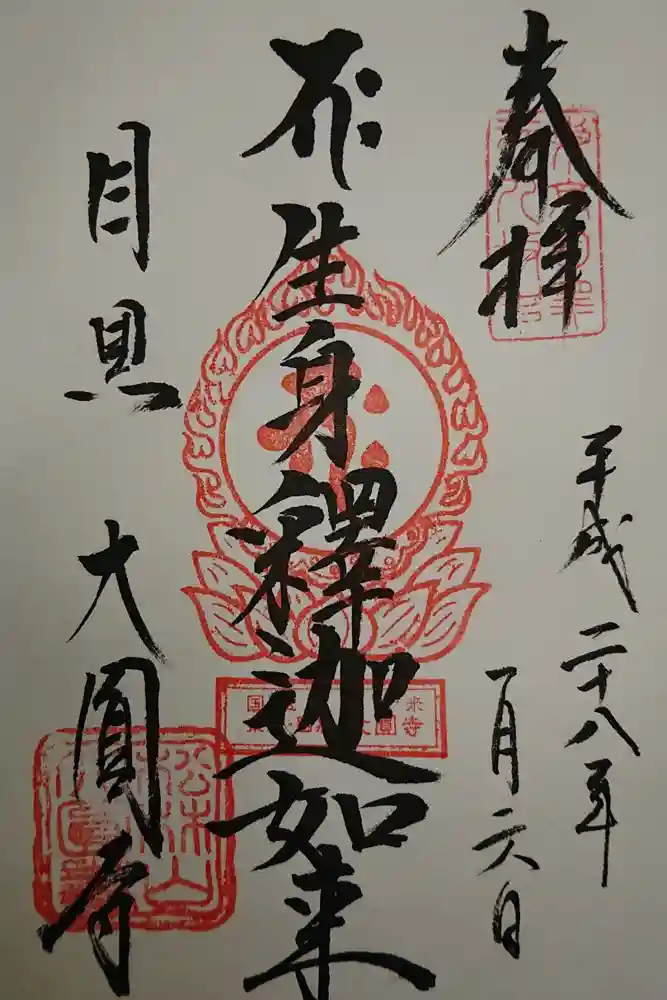 奉拝
平成二十八年
一月六日
生身釋迦如来
目黒 大圓寺
松林山